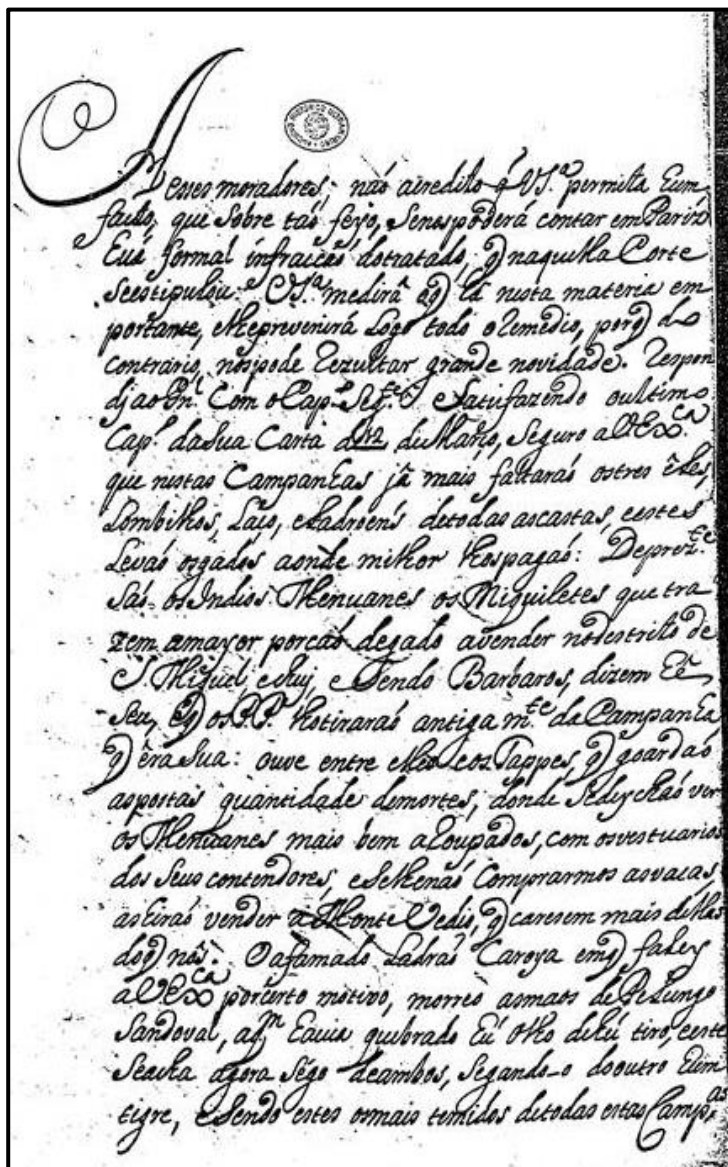 A
Desses moradores, não acredito q̃ VS.ª permita hum
facto, que sobre taõ feyo, senos poderá contar em Pariz
hũa formal infraicaõ dotratado, q̃ naquella Corte
seestipulou. VS.ª medirá oq̃ lá nesta materia em
portante, elheprevenirá Logo todo oRemedio, porq̃ do
contrario, nospode Rezultar grande novidade. Respon
dj ao
Com o Cap.º Seg.te Satisfazendo oultimo
Cap.º dasua Carta de 12 de Março, Seguro a VEx.ca
que nestas Campanhas já mais faltaraõ ostres
Lombilhos, Laço, eLadroens detodas ascastas, eestes
Levaõ osgados aonde milhor lhospagaõ: Deprez.te
Saõ os Indios Menuanes os Miquiletes que tra
zem amayor porcaõ degado avender nodestrito de
S. Miguel, eChuj, e Sendo Barbaros, dizem hé
Seu, eq̃ os PP. lhotiraraõ antiga m.te da Campanha
q̃ éra Sua: ouve entre elles eos Tappes, q̃ goardaõ
aspostas quantidade demortes, donde Sedeychaõ ver
os Menuanes mais bem aRoupados, com osvestuarios
dos Seus contendores, eSelhenaõ Comprarmos asvacas,
ashiraõ vender a Monte Vedio, q̃ caresem mais dellas
doq̃ nós. Oafamado Ladraõ Caroya emq̃ faley
a VEx.ca porcerto motivo, morreo asmaos de Pelungo
Sandoval, aq.m havia quebrado hũ olho dehũ tiro, eeste
Seacha agora Sego deambos, Segando-o dooutro hum
tigre, eSendo estes osmais temidos detodas estas Camp.as